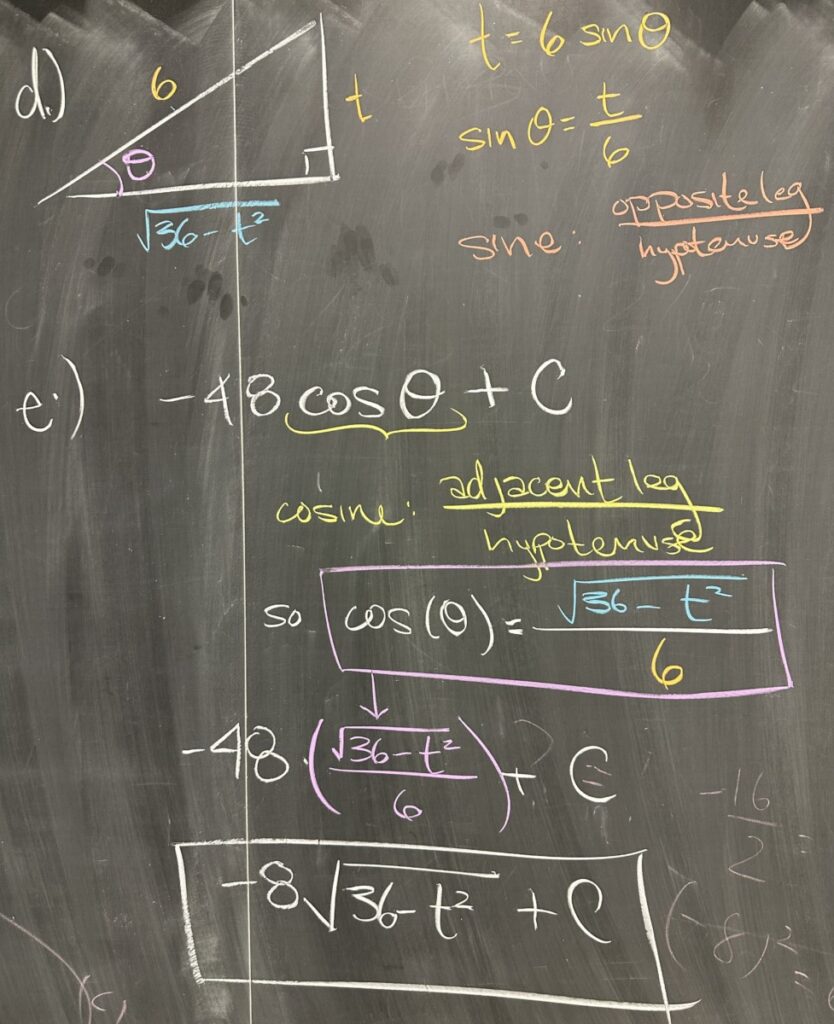 d.)
6
t
θ
√36 - t²
t = 6 sinθ
sin θ = t/6
sine: opposite leg / hypotenuse
e.) -48 cos θ + C
cosine: adjacent leg / hypotenuse
so cos(θ) = √36 - t² / 6
-48 · (√36 - t² / 6) + C
-8√36 - t² + C
-16/2 =
(-8)² =